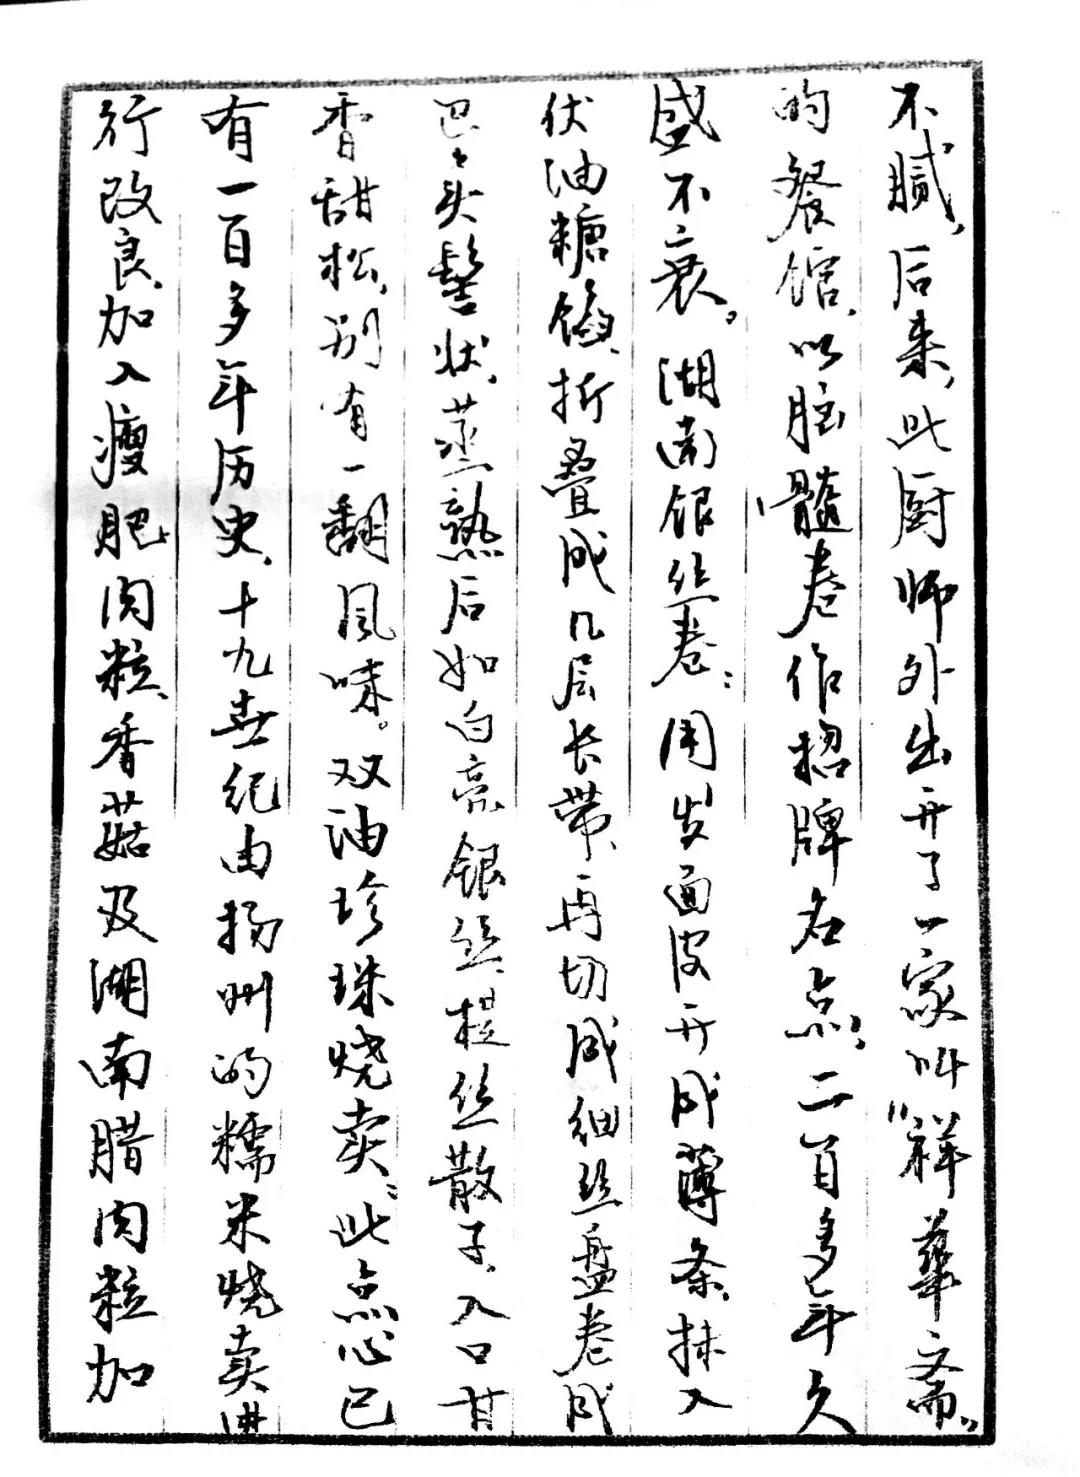 不腻，后来，此厨师外出开了一家叫“祥華斋”
的餐馆，以脑髓卷作招牌名点，二百多年久
盛不衰。湖南银丝卷：用发面皮开成薄条，抹入
伏油糖馅，折叠成几层长带，再切成细丝盘卷成
巴巴头髻状，蒸熟后如白亮银丝，提丝散子，入口甘
香甜松，别有一翻风味。双油珍珠烧卖：此点心已
有一百多年历史，十九世纪由扬州的糯米烧卖进
行改良，加入瘦肥肉粒，香菇及湖南腊肉粒加